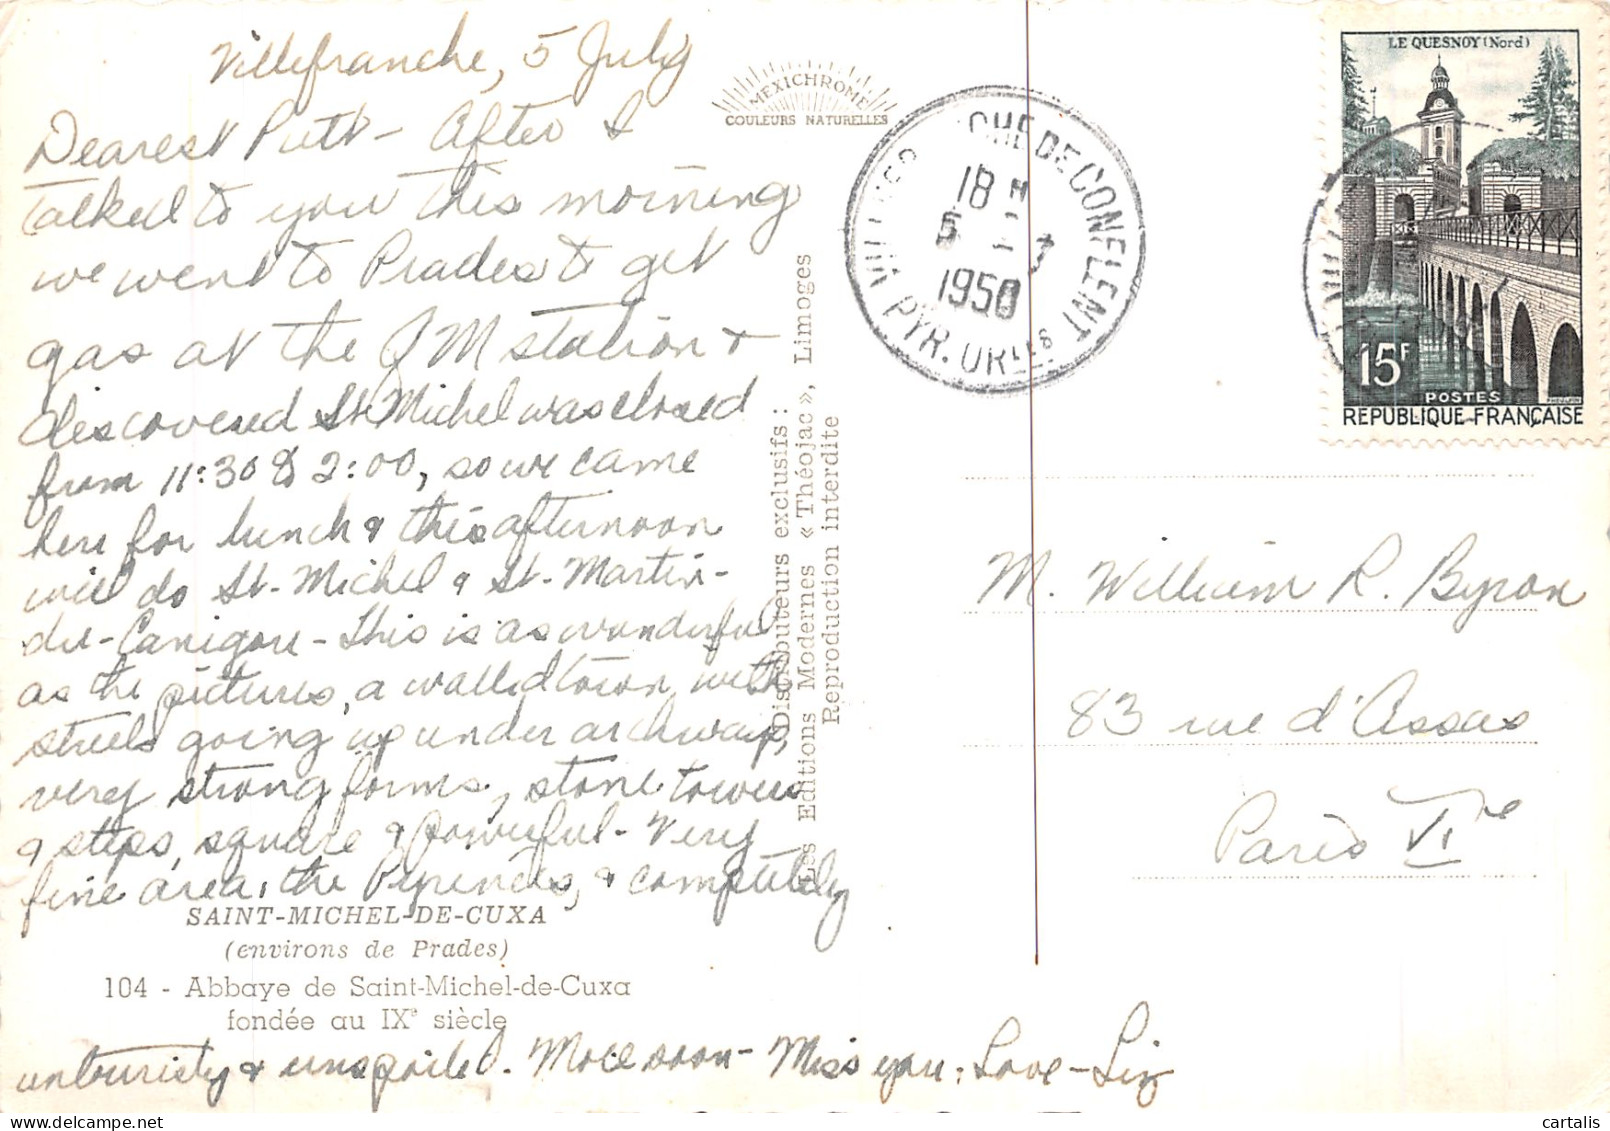 Villefranche, 5 July
Dearest Putt - After I
talked to you this morning
we went to Prades to get
gas at the QM station &
discovered St Michel was closed
from 11:30 & 2:00, so we came
here for lunch & this afternoon
will do St-Michel & St-Martin-
du-Canigou - This is as wonderful
as the pictures, a walled town with
streets going up under archways,
very strong forms, stone towers
& steps, square & powerful - Very
fine area, the Pyrenees, & completely
SAINT-MICHEL-DE-CUXA
(environs de Prades)
104 - Abbaye de Saint-Michel-de-Cuxa
fondée au IXe siècle
untouristy & unspoiled. More soon - Miss you. Love - Liz
MEXICHROME
COULEURS NATURELLES
Distributeurs exclusifs :
Les Editions Modernes « Théojac », Limoges
Reproduction interdite
CHE DE CONFLENT
18 H
5 - 7
1958
PYR. ORLES
LE QUESNOY (Nord)
15F
POSTES
REPUBLIQUE FRANÇAISE
M. William R. Byron
83 rue d'Assas
Paris VIe
cartalis